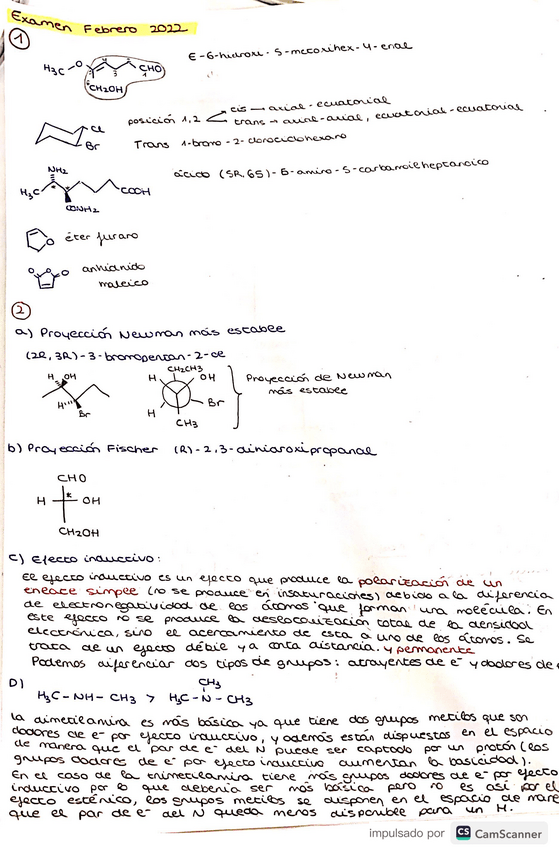 Examen Febrero 2022
①
E-6-hidroxi-5-metoxihex-4-enal
H₃C O 4 5 3 CHO 1
CH₂OH
posición 1,2 cis — axial-ecuatorial
trans → axial-axial, ecuatorial-ecuatorial
Cl
Br
Trans 1-bromo-2-clorociclohexano
NH₂
H₃C COOH
CONH₂
ácido (5R,6S)-6-amino-5-carbamoilheptanoico
O éter furano
O O O anhidrido
maleico
②
a) Proyección Newman más estable
(2R, 3R)-3-bromopentan-2-ol
H OH
H Br
CH₂CH₃
H OH
H Br
CH₃
Proyección de Newman
más estable
b) Proyección Fischer (R)-2,3-dihidroxipropanal
CHO
H * OH
CH₂OH
C) Efecto inductivo:
El efecto inductivo es un efecto que produce la polarización de un
enlace simple (no se produce en insaturaciones) debido a la diferencia
de electronegatividad de los átomos que forman una molécula. En
este efecto no se produce la deslocalización total de la densidad
electrónica, sino el acercamiento de esta a uno de los átomos. Se
trata de un efecto débil y a corta distancia. y permanente
Podemos diferenciar dos tipos de grupos: atrayentes de e⁻ y dadores de e
D)
H₃C-NH-CH₃ > H₃C-N-CH₃
CH₃
La dimetilamina es más básica ya que tiene dos grupos metilos que son
dadores de e⁻ por efecto inductivo, y además están dispuestos en el espacio
de manera que el par de e⁻ del N puede ser captado por un protón (los
grupos dadores de e⁻ por efecto inductivo aumentan la basicidad).
En el caso de la trimetilamina tiene más grupos dadores de e⁻ por efecto
inductivo por lo que debería ser más básica pero no es así por el
efecto estérico, los grupos metilos se disponen en el espacio de mane
que el par de e⁻ del N queda menos disponible para un H.
impulsado por CS CamScanner